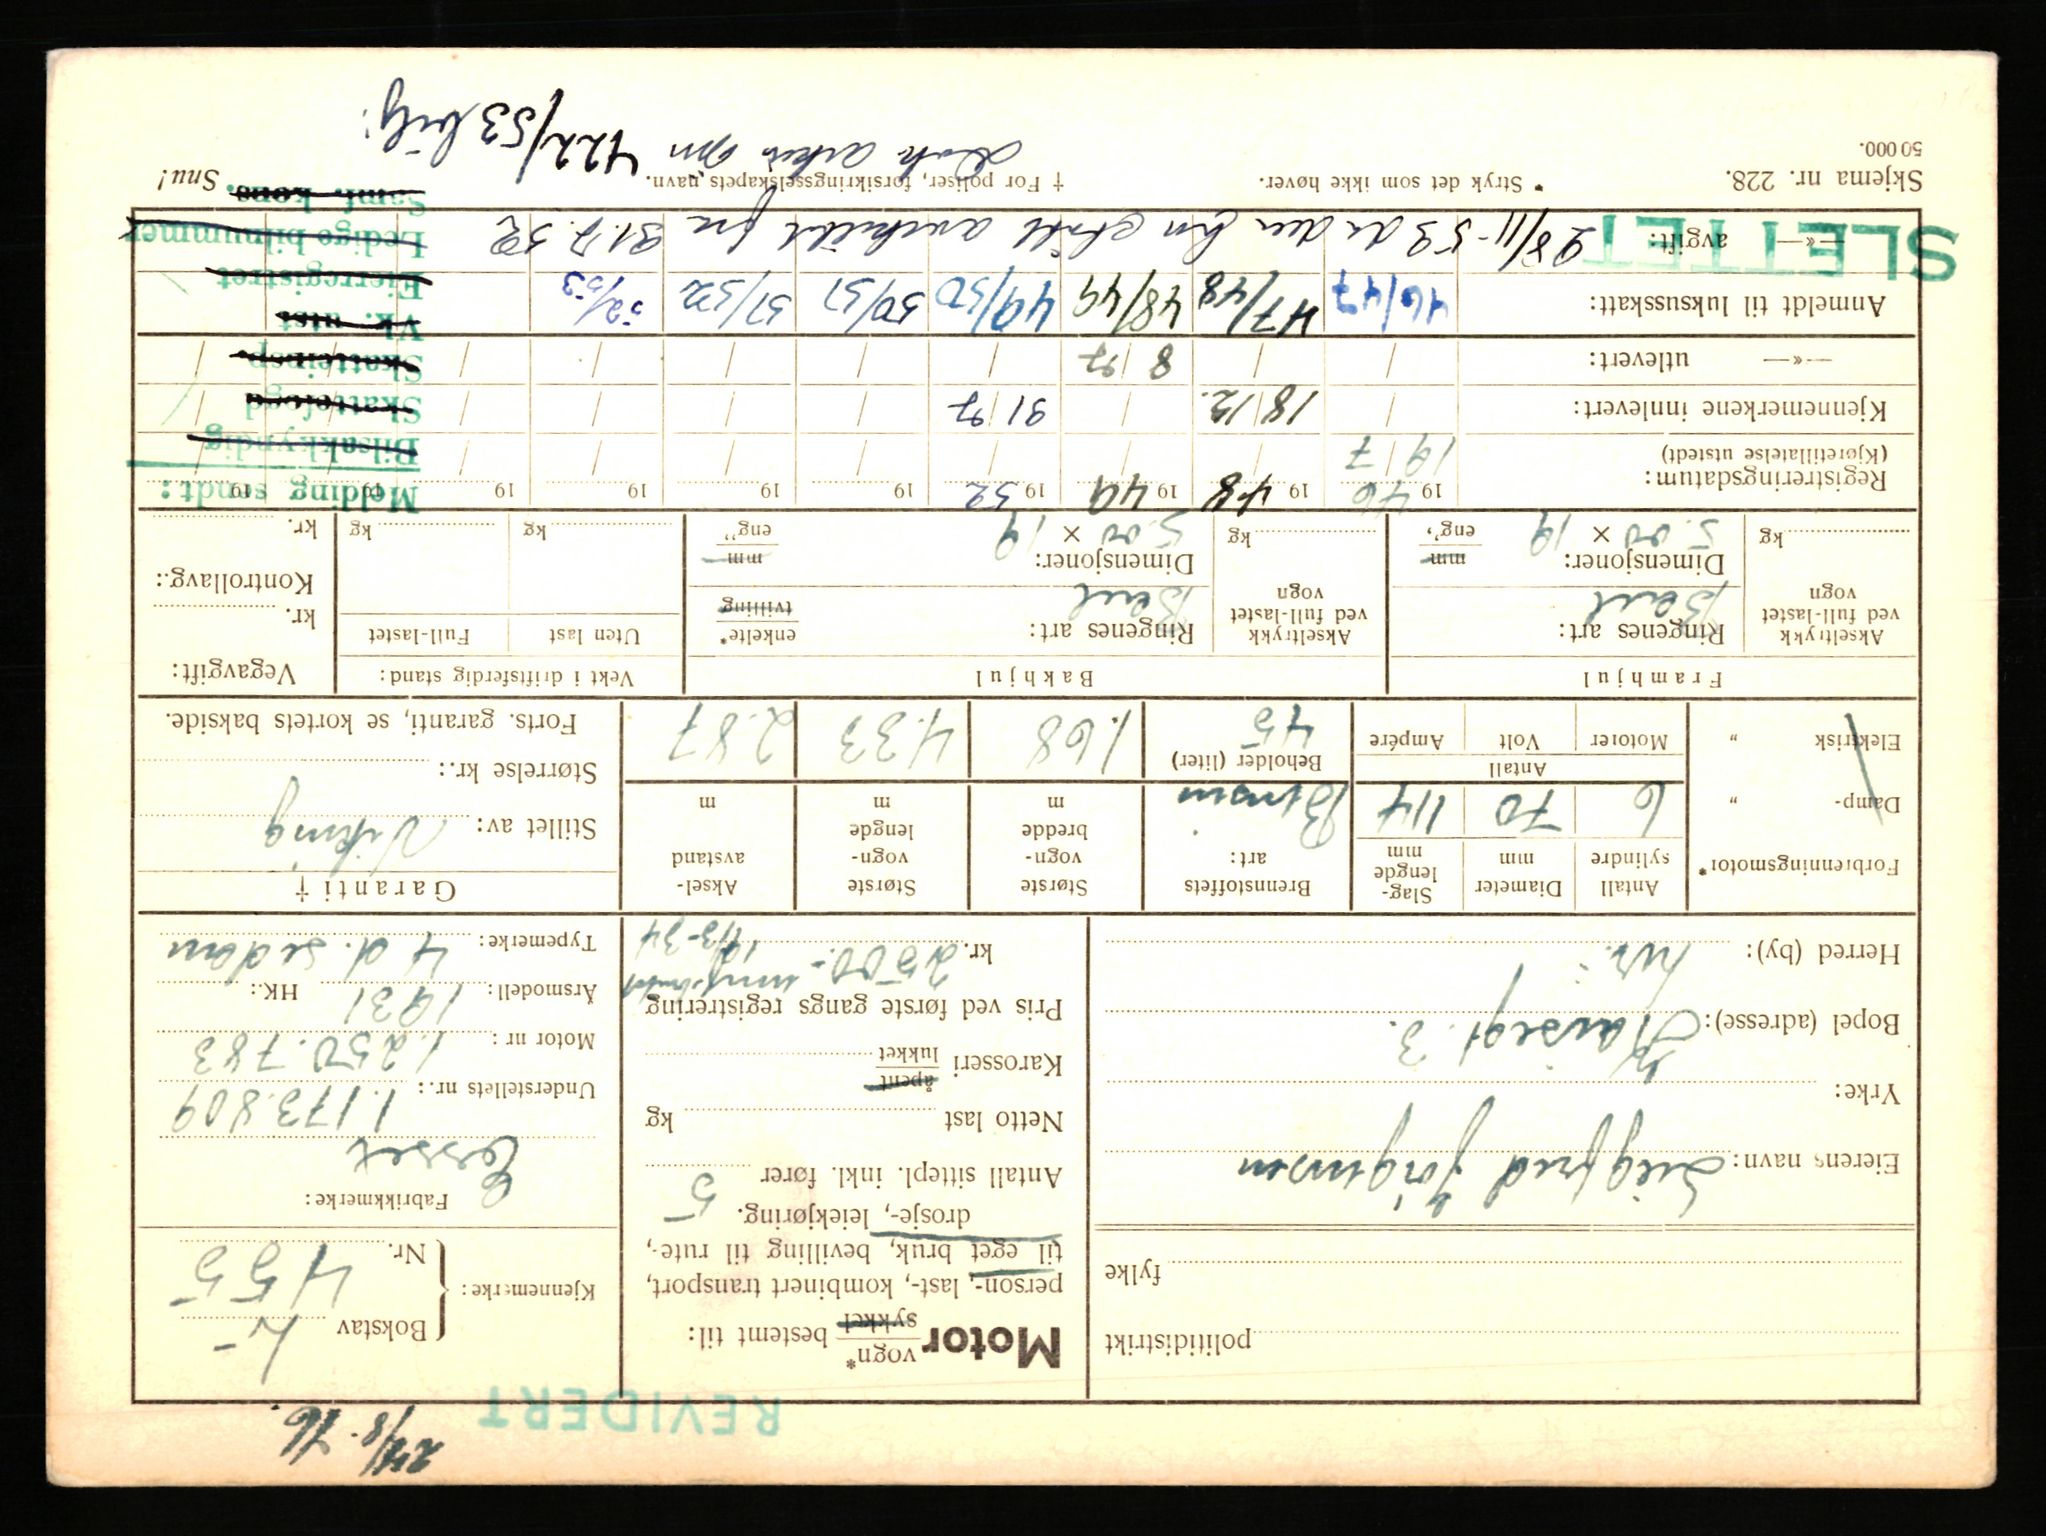 REVIDERT
24/8-46.
politidistrikt
fylke
Eierens navn: Siegfred Jörgensen
Yrke:
Bopel (adresse): Kaisegt. 3.
Herred (by): her.
Motor vogn* sykkel bestemt til:
person-, last-, kombinert transport,
til eget bruk, bevilling til rute-,
drosje-, leiekjøring.
Antall sittepl. inkl. fører 5
Netto last kg
Karosseri åpent lukket
Pris ved første gangs registrering
kr. 2500.- 14/3-34
Kjennemerke: { Bokstav K
Nr. 455
Fabrikkmerke: Essex
Understellets nr.: 1.173.809
Motor nr: 1.250.783
Årsmodell: 1931 HK.:
Typemerke: 4 d. sedan
Forbrenningsmotor*
Damp- "
Elektrisk "
Antall sylindre Diameter mm Slag- lengde mm
6 70 114
Antall
Motorer Volt Ampére
Brennstoffets art: Bensin
Beholder (liter) 45
Største vogn- bredde m 1.68
Største vogn- lengde m 4.33
Aksel- avstand m 2.87
Garanti †
Stillet av: Viking
Størrelse kr.:
Forts. garanti, se kortets bakside.
Framhjul
Akseltrykk ved full-lastet vogn kg
Ringenes art: Ball
Dimensjoner: mm eng."
5.00 × 19
Bakhjul
Akseltrykk ved full-lastet vogn kg
Ringenes art: Ball enkelte* tvilling
Dimensjoner: mm eng."
5.00 × 19
Vekt i driftsferdig stand:
Uten last Full-lastet
kg kg
Vegavgift:
kr.
Kontrollavg.:
kr.
Registreringsdatum: 1946 1948 1949 1952 19 19 19 19 19 19
(Kjøretillatelse utstedt) 19/7
Kjennemerkene innlevert: 18/12. 31/7
—«— utlevert: 8/7
Anmeldt til luksusskatt: 46/47 47/48 48/49 49/50 50/51 51/52 52/53
—«— avgift: 28/11-53 da den er avskiltet fra 31.7.52
SLETTET
Melding sendt:
Bilsakkyndig
Skattefogd
Skatteinsp
Vk. utst
Eierregistret
Ledige bilnummer
Samf. kons.
Skjema nr. 228.
50 000.
* Stryk det som ikke høver.
† For poliser, forsikringsselskapets navn.
Snu!
422/53